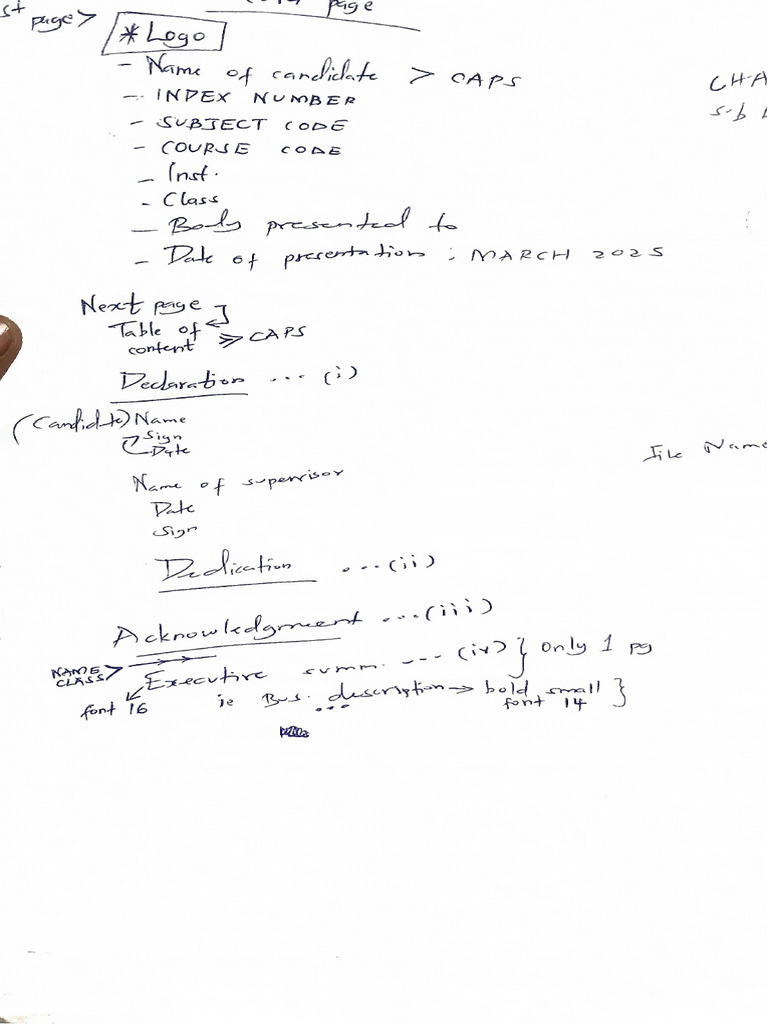 st page > page
* Logo
- Name of candidate > CAPS
- INDEX NUMBER
- SUBJECT CODE
- COURSE CODE
- Inst.
- Class
- Body presented to
- Date of presentation : MARCH 2025
CHA
Next page
Table of
content >> CAPS
Declaration ... (i)
(Candidate) Name
Sign
Date
File Name
Name of supervisor
Date
Sign
Dedication ... (ii)
Acknowledgment ... (iii)
Executive summ. ... (iv) } only 1 pg
NAME >
CLASS
font 16 ie Bus. description → bold small }
... font 14